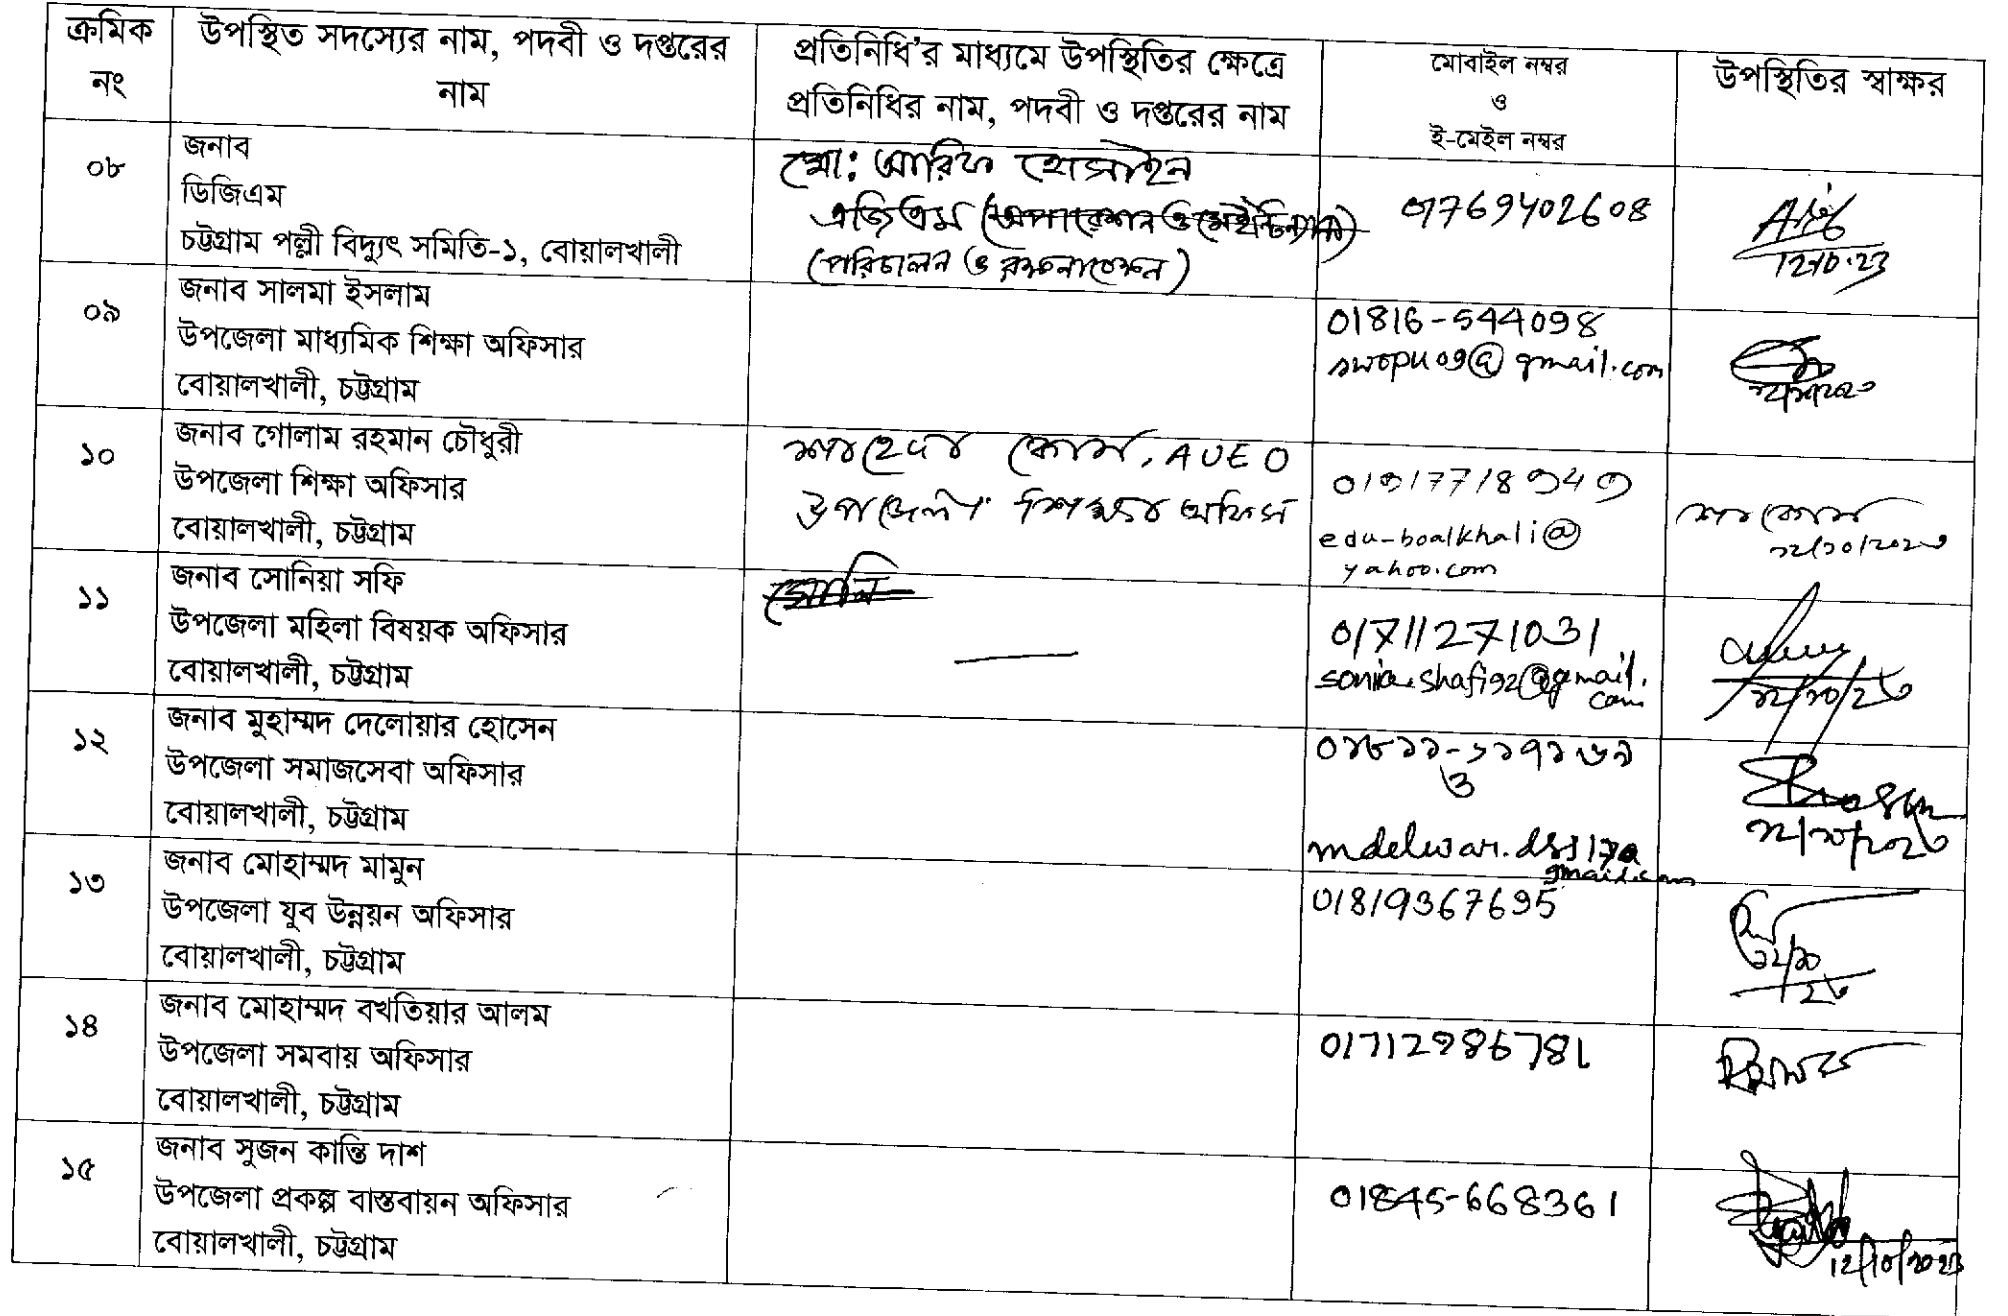 ক্রমিক
নং
উপস্থিত সদস্যের নাম, পদবী ও দপ্তরের
নাম
প্রতিনিধি'র মাধ্যমে উপস্থিতির ক্ষেত্রে
প্রতিনিধির নাম, পদবী ও দপ্তরের নাম
মোবাইল নম্বর
ও
ই-মেইল নম্বর
উপস্থিতির স্বাক্ষর
০৮
জনাব
ডিজিএম
চট্টগ্রাম পল্লী বিদ্যুৎ সমিতি-১, বোয়ালখালী
মো: আরিফ হোসাইন
এজিএম (অপারেশন ও মেইন্টিন্যান্স)
(পরিচালন ও রক্ষনাবেক্ষন)
01769402608
12.10.23
০৯
জনাব সালমা ইসলাম
উপজেলা মাধ্যমিক শিক্ষা অফিসার
বোয়ালখালী, চট্টগ্রাম
01816-544098
swopu09@gmail.com
১০
জনাব গোলাম রহমান চৌধুরী
উপজেলা শিক্ষা অফিসার
বোয়ালখালী, চট্টগ্রাম
AUEO
উপজেলা শিক্ষা অফিস
edu-boalkhali@
yahoo.com
১২/১০/২০২৩
১১
জনাব সোনিয়া সফি
উপজেলা মহিলা বিষয়ক অফিসার
বোয়ালখালী, চট্টগ্রাম
01711271031
sonia.shafi92@gmail.
com
১২/১০/২৩
১২
জনাব মুহাম্মদ দেলোয়ার হোসেন
উপজেলা সমাজসেবা অফিসার
বোয়ালখালী, চট্টগ্রাম
০১৮১১-১১৭১৬৯
ও
gmail.com
১২/১০/২০২৩
১৩
জনাব মোহাম্মদ মামুন
উপজেলা যুব উন্নয়ন অফিসার
বোয়ালখালী, চট্টগ্রাম
01819367695
১২/১০
/২৩
১৪
জনাব মোহাম্মদ বখতিয়ার আলম
উপজেলা সমবায় অফিসার
বোয়ালখালী, চট্টগ্রাম
01712986781
১৫
জনাব সুজন কান্তি দাশ
উপজেলা প্রকল্প বাস্তবায়ন অফিসার
বোয়ালখালী, চট্টগ্রাম
01845-668361
12/10/2023